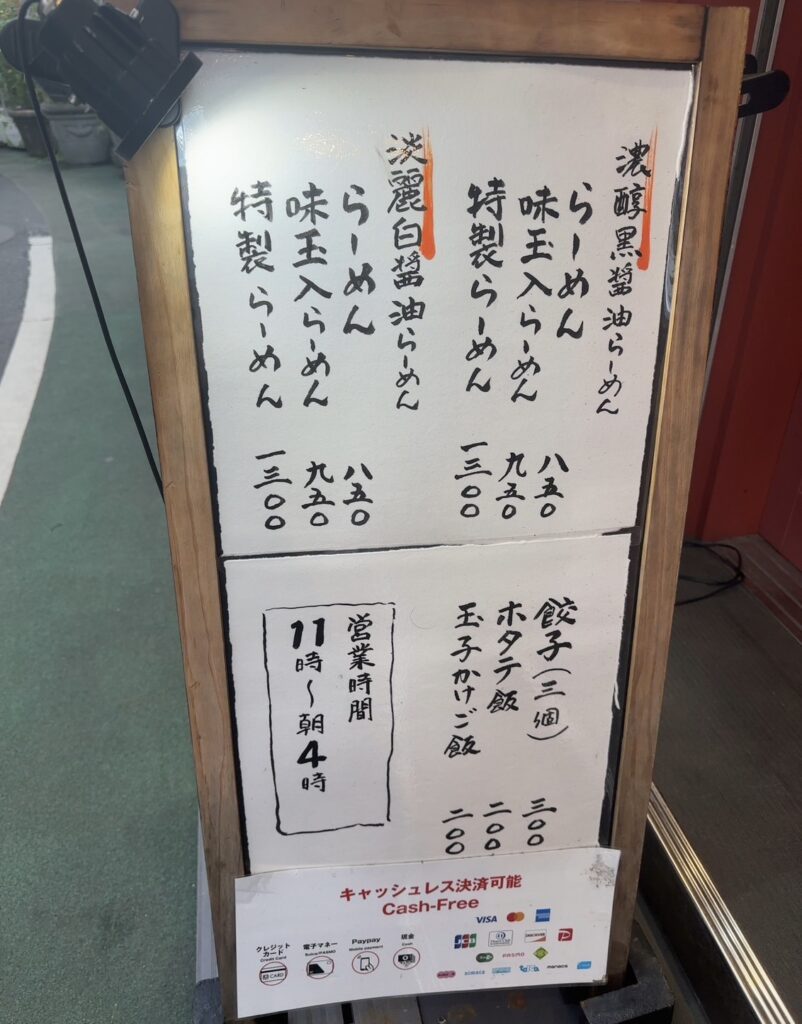 濃醇黒醤油らーめん
らーめん 八五〇
味玉入らーめん 九五〇
特製らーめん 一三〇〇
淡麗白醤油らーめん
らーめん 八五〇
味玉入らーめん 九五〇
特製らーめん 一三〇〇
餃子(三個) 三〇〇
ホタテ飯 二〇〇
玉子かけご飯 二〇〇
営業時間
11時〜朝4時
キャッシュレス決済可能
Cash-Free
VISA
クレジットカード
Credit Card
CARD
電子マネー
Suica/PASMO
Paypay
Mobile payment
現金
Cash
JCB
DISCOVER
PASMO
manaca